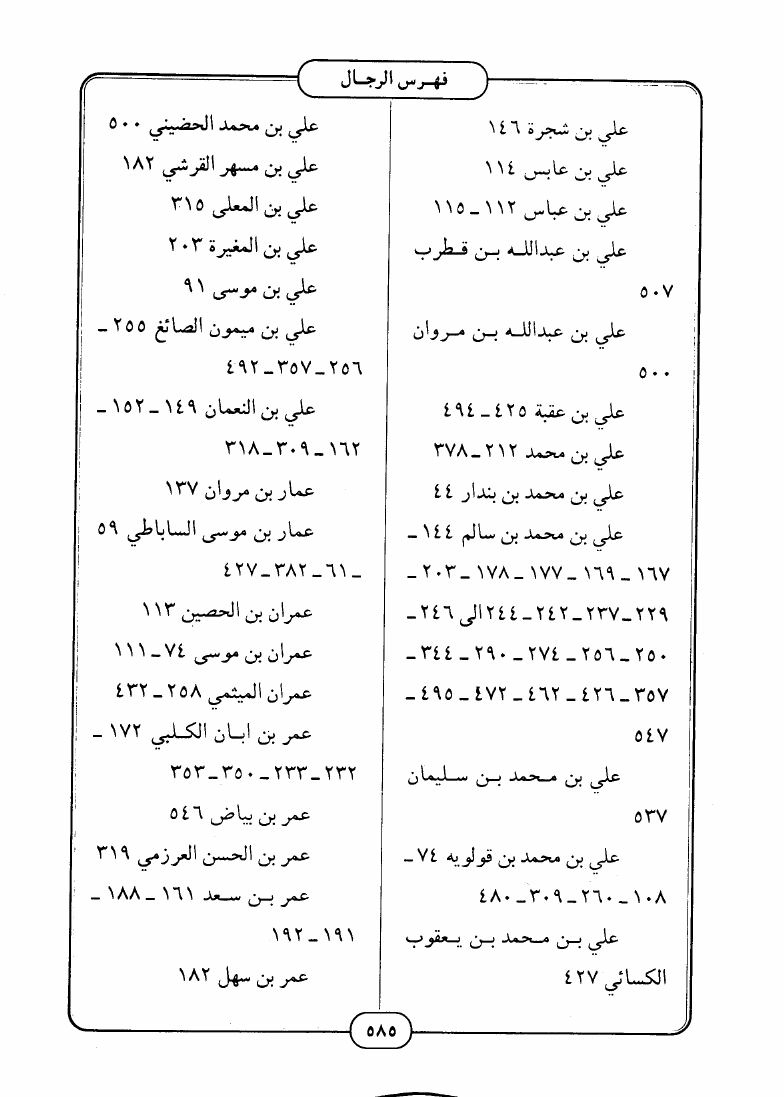 فهرس الرجال
علي بن شجرة ١٤٦
علي بن عابس ١١٤
علي بن عباس ١١٢ ـ ١١٥
علي بن عبدالله بن قطرب
٥٠٧
علي بن عبدالله بن مروان
٥٠٠
علي بن عقبة ٤٢٥ ـ ٤٩٤
علي بن محمد ٢١٢ ـ ٣٧٨
علي بن محمد بن بندار ٤٤
علي بن محمد بن سالم ١٤٤ ـ
١٦٧ ـ ١٦٩ ـ ١٧٧ ـ ١٧٨ ـ ٢٠٣ ـ
٢٢٩ ـ ٢٣٧ ـ ٢٤٢ ـ ٢٤٤ الى ٢٤٦ ـ
٢٥٠ ـ ٢٥٦ ـ ٢٧٤ ـ ٢٩٠ ـ ٣٤٤ ـ
٣٥٧ ـ ٤٢٦ ـ ٤٦٢ ـ ٤٧٢ ـ ٤٩٥ ـ
٥٤٧
علي بن محمد بن سليمان
٥٣٧
علي بن محمد بن قولويه ٧٤ ـ
١٠٨ ـ ٢٦٠ ـ ٣٠٩ ـ ٤٨٠
علي بن محمد بن يعقوب
الكسائي ٤٢٧
علي بن محمد الحضيني ٥٠٠
علي بن مسهر القرشي ١٨٢
علي بن المعلى ٣١٥
علي بن المغيرة ٢٠٣
علي بن موسى ٩١
علي بن ميمون الصائغ ٢٥٥ ـ
٢٥٦ ـ ٣٥٧ ـ ٤٩٢
علي بن النعمان ١٤٩ ـ ١٥٢ ـ
١٦٢ ـ ٣٠٩ ـ ٣١٨
عمار بن مروان ١٣٧
عمار بن موسى الساباطي ٥٩
ـ ٦١ ـ ٣٨٢ ـ ٤٢٧
عمران بن الحصين ١١٣
عمران بن موسى ٧٤ ـ ١١١
عمران الميثمي ٢٥٨ ـ ٤٣٢
عمر بن ابان الكلبي ١٧٢ ـ
٢٣٢ ـ ٢٣٣ ـ ٣٥٠ ـ ٣٥٣
عمر بن بياض ٥٤٦
عمر بن الحسن العرزمي ٣١٩
عمر بن سعد ١٦١ ـ ١٨٨ ـ
١٩١ ـ ١٩٢
عمر بن سهل ١٨٢
٥٨٥